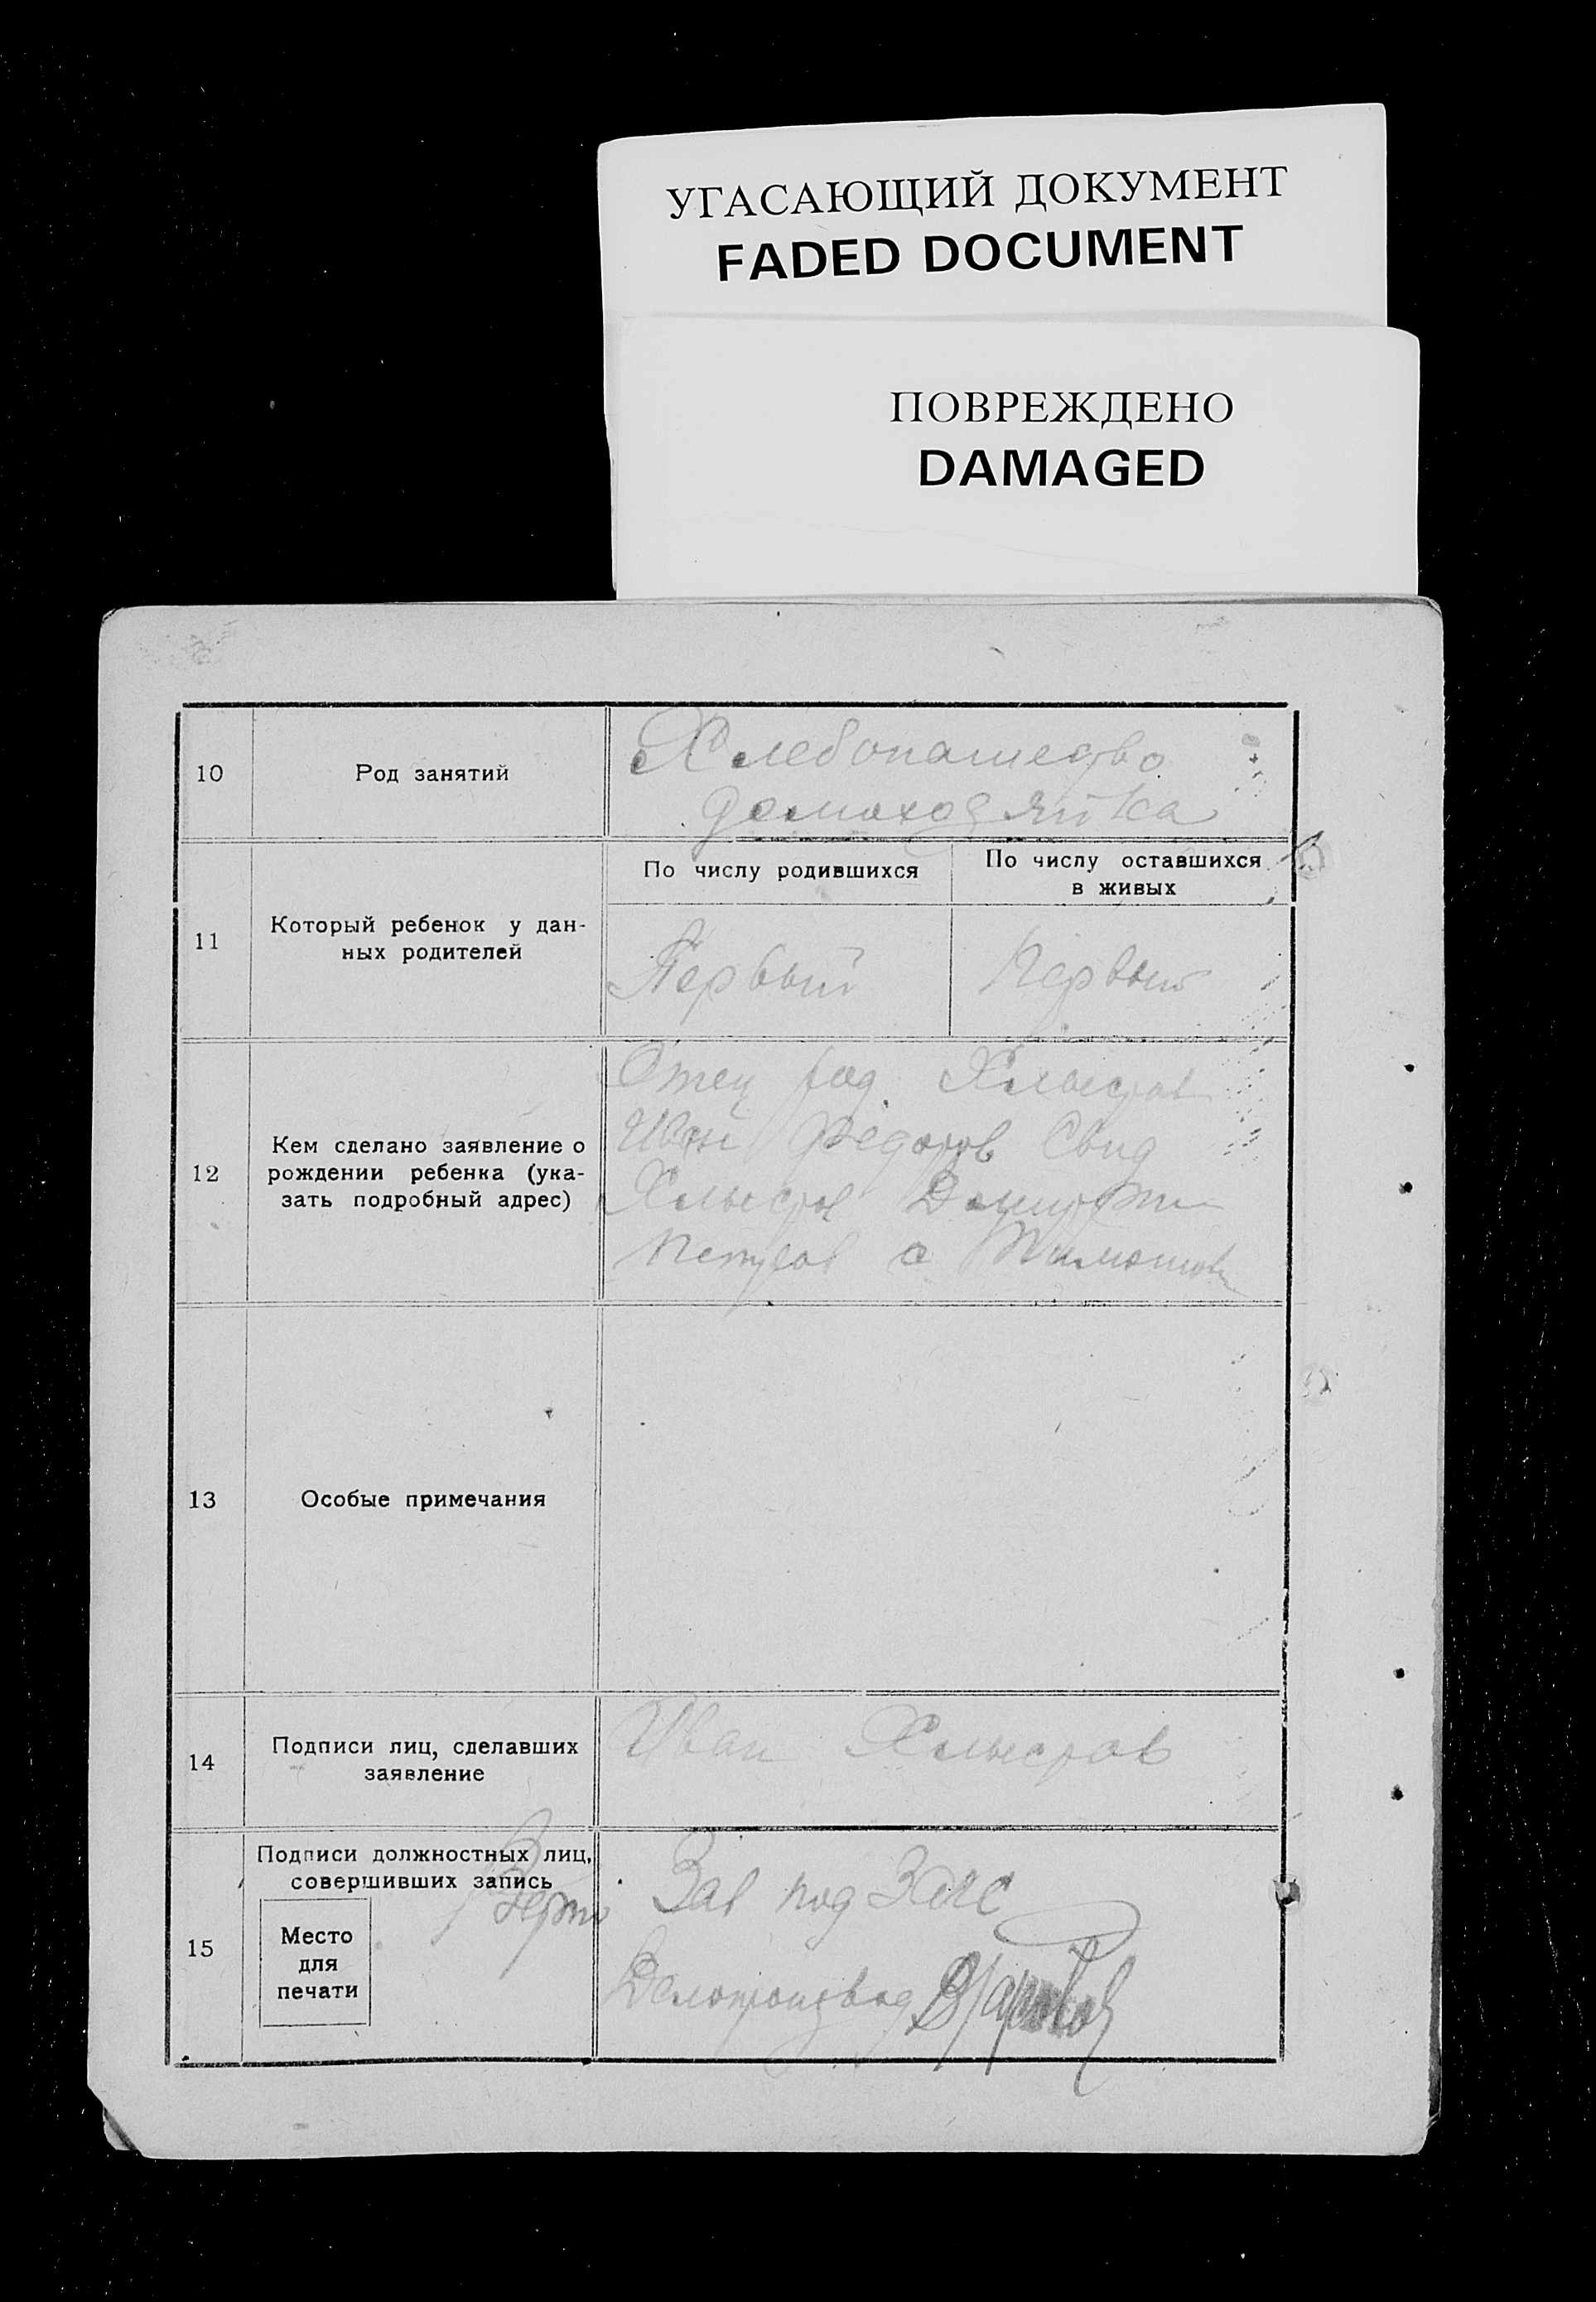 УГАСАЮЩИЙ ДОКУМЕНТ
FADED DOCUMENT
ПОВРЕЖДЕНО
DAMAGED
10
Род занятий
Хлебопашество
домохозяйка
11
Который ребенок у дан-
ных родителей
По числу родившихся
По числу оставшихся
в живых
Первый
Первый
12
Кем сделано заявление о
рождении ребенка (ука-
зать подробный адрес)
Отец Хлыстов
Иван Федоров Свид
Хлыстов Дмитрий
Петров с
13
Особые примечания
14
Подписи лиц, сделавших
заявление
Иван Хлыстов
15
Подписи должностных лиц,
совершивших запись
Место
для
печати
Верно
Зав под Загс
Делопроизвод